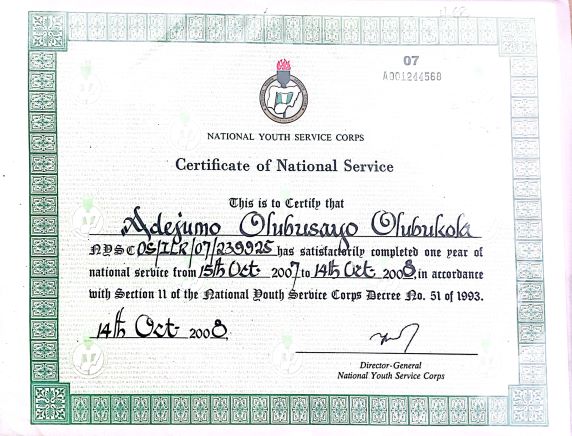 07
A001244568
NATIONAL YOUTH SERVICE CORPS
Certificate of National Service
This is to Certify that
Adejumo Olubusayo Olubukola
NYSC OS/ILR/07/239925 has satisfactorily completed one year of
national service from 15th Oct 2007 to 14th Oct 2008, in accordance
with Section 11 of the National Youth Service Corps Decree No. 51 of 1993.
14th Oct 2008
Director-General
National Youth Service Corps